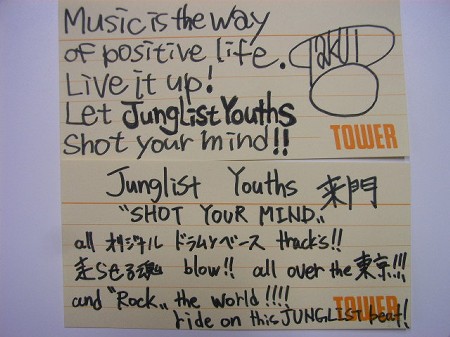 Music is the way
of positive life.
Live it up!
Let Junglist Youths
shot your mind!!
TAKUI
TOWER
Junglist Youths 来門
"SHOT YOUR MIND„
all オリジナル ドラムンベース tracks!!
走らせる魂 blow!! all over the 東京!!!
and "Rock„ the world !!!!
TOWER
ride on this JUNGLIST beat!